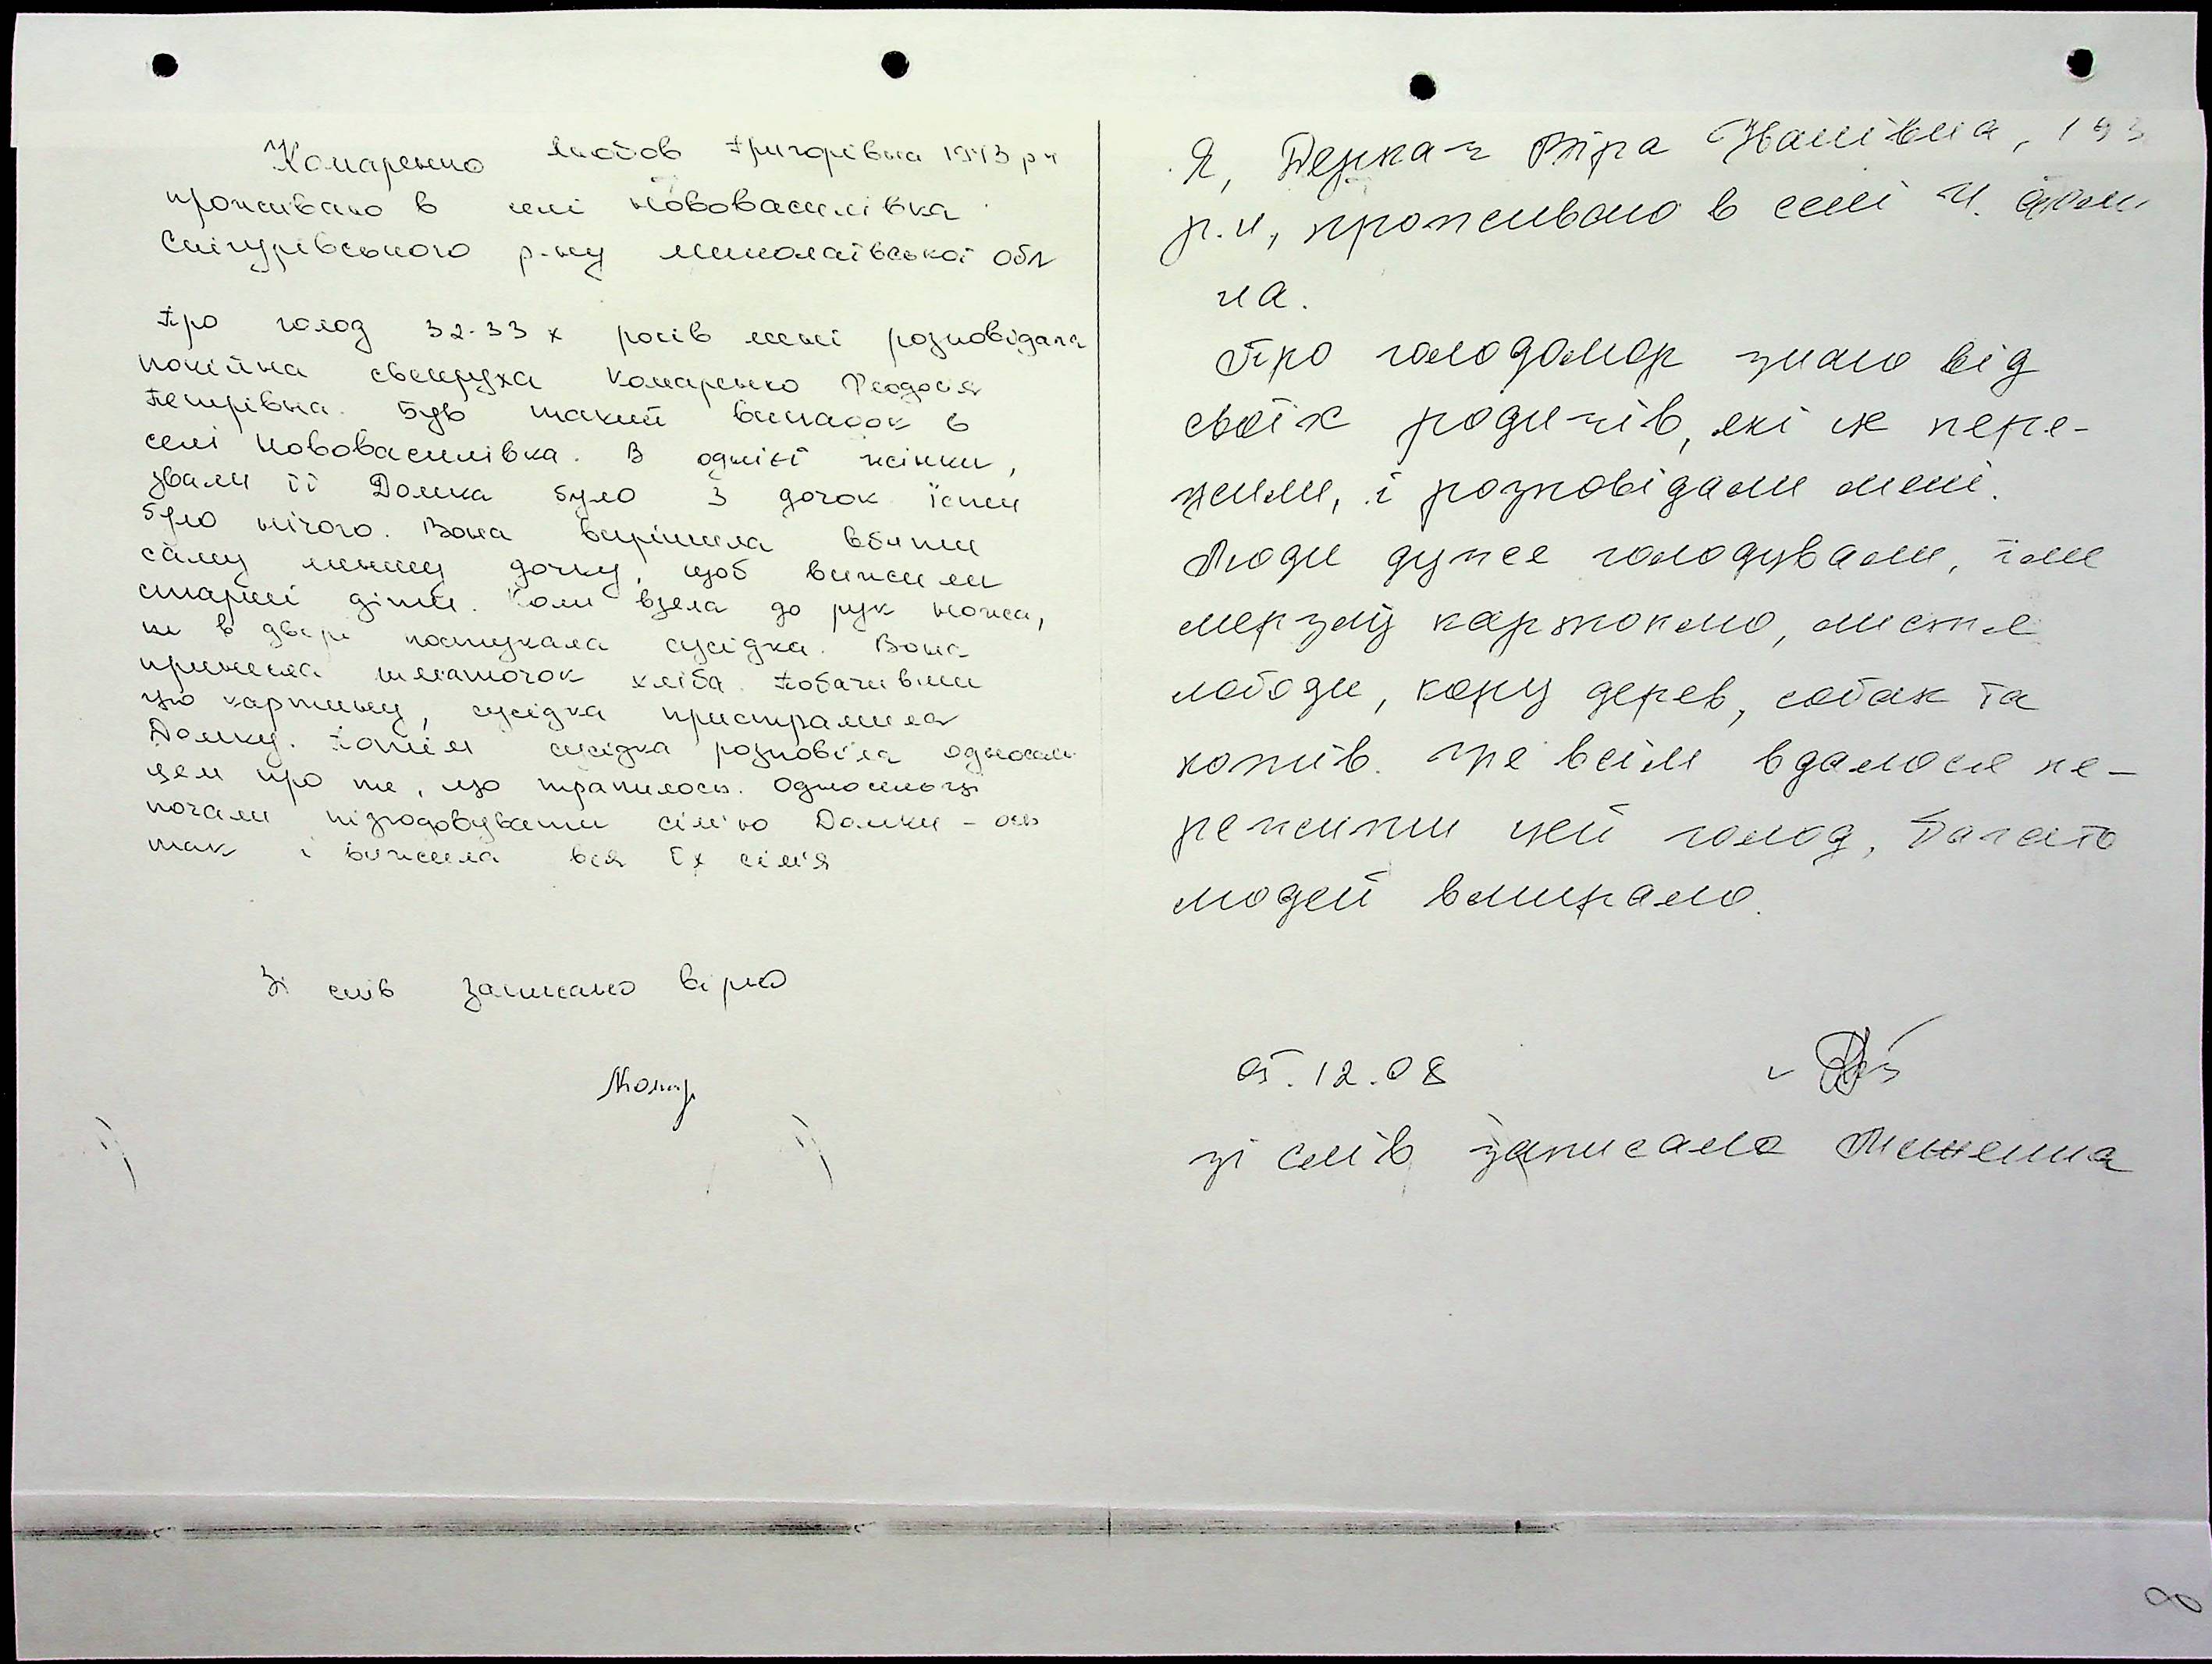 Комаренко Любов Григорівна 1943 р н
проживаю в селі Нововасилівка
Снігурівського р-ну Миколаївської обл
Про голод 32-33 х років мені розповідала
покійна свекруха Комаренко Феодосія
Петрівна. Був такий випадок в
селі Нововасилівка. В однієї жінки,
звали її Домка було 3 дочок їсти
було нічого. Вона вирішила вбити
саму меншу дочку, щоб вижили
старші діти. Коли взяла до рук ножа,
в двері постукала сусідка. Вона
принесла шматочок хліба. Побачивши
цю картину, сусідка пристрамила
Домку. Потім сусідка розповіла односель
цям про те, що трапилось. Односельці
почали підгодовувати сім'ю Домки - ось
так і вижила вся їх сім'я
Зі слів записано вірно
Я, Деркач Віра Іванівна, 193
р.н, проживаю в селі
на.
Про голодомор знаю від
своїх родичів, які це пере-
жили, і розповідали мені.
Люди дуже голодували, їли
мерзлу картоплю, листя
лободи, кору дерев, собак та
котів. Не всім вдалося пе-
режити цей голод, багато
людей вмирало.
05.12.08
зі слів записала
8